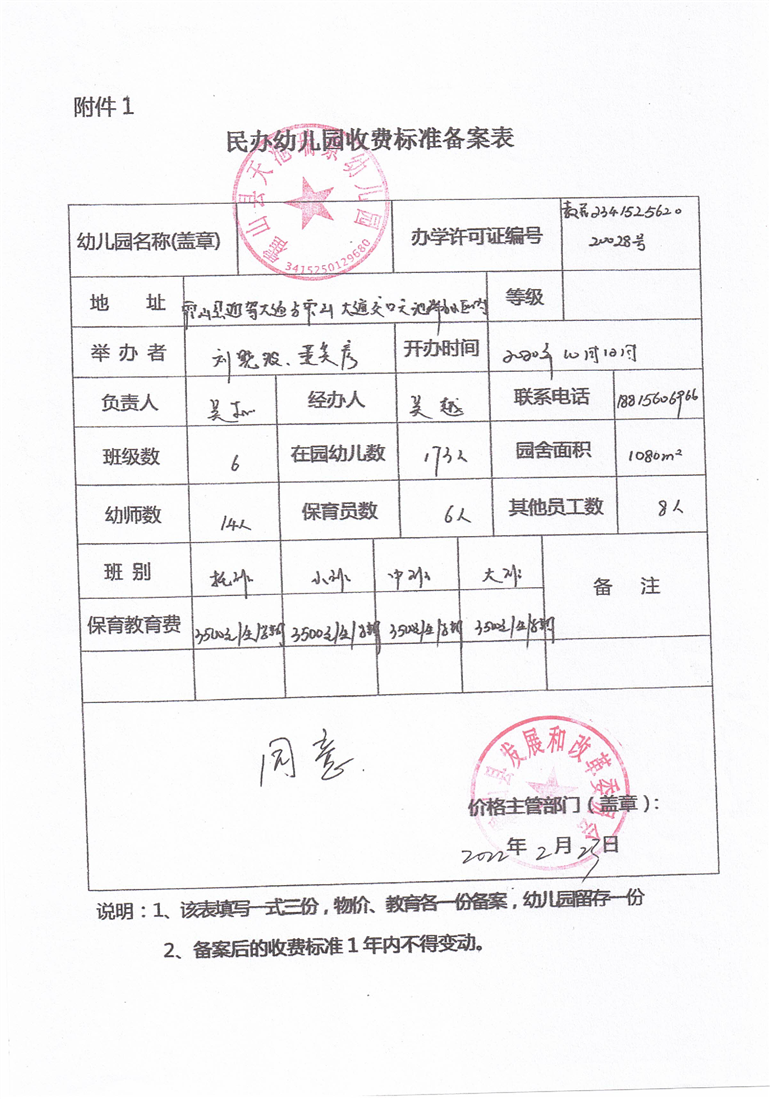 附件1
民办幼儿园收费标准备案表
霍山县天池瑞景幼儿园
3415250129680
幼儿园名称(盖章)
办学许可证编号
教民234152562020028号
地 址
霍山县迎驾大道与霍山大道交口天池
等级
举办者
刘晓波、
开办时间
2020年10月10日
负责人
吴
经办人
吴越
联系电话
18815606966
班级数
6
在园幼儿数
173人
园舍面积
1080m²
幼师数
14人
保育员数
6人
其他员工数
8人
班 别
托班
小班
中班
大班
备 注
保育教育费
3500元/生/学期
3500元/生/学期
3500元/生/学期
3500元/生/学期
同意.
霍山县发展和改革委员会
价格主管部门（盖章）：
2022年2月25日
说明：1、该表填写一式三份，物价、教育各一份备案，幼儿园留存一份
2、备案后的收费标准1年内不得变动。